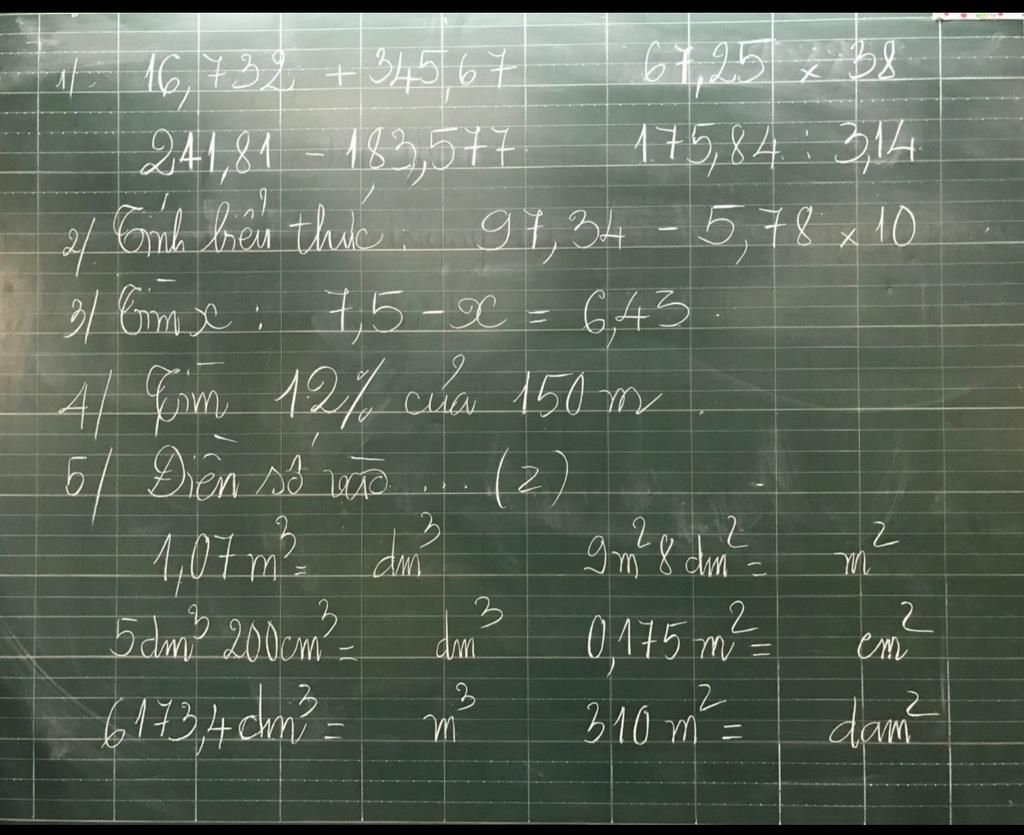 1/. 16,732 + 345,67 67,25 × 38
241,81 - 183,577 175,84 : 3,14
2/ Tính biểu thức : 97,34 - 5,78 × 10
3/ Tìm x : 7,5 - x = 6,43
4/ Tìm 12% của 150 m.
5/ Điền số vào ... (2)
1,07 m³ = dm³ 9m² 8 dm² = m²
5dm³ 200cm³ = dm³ 0,175 m² = cm²
6173,4 dm³ = m³ 310 m² = dam²